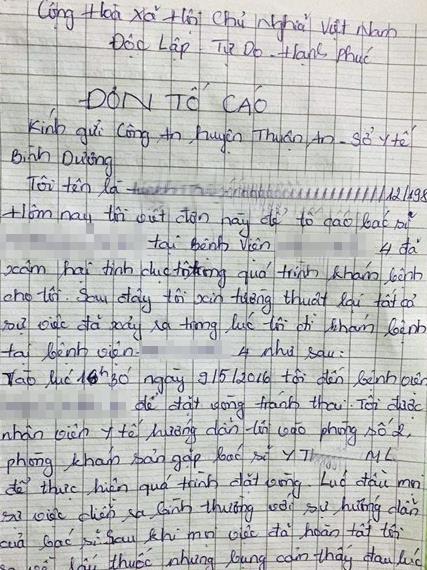 Cộng Hoà Xã Hội Chủ Nghĩa Việt Nam
Độc Lập - Tự Do - Hạnh Phúc
ĐƠN TỐ CÁO
Kính gửi Công An huyện Thuận An - Sở y tế
Bình Dương
Tôi tên là 12/198
Hôm nay tôi viết đơn này để tố cáo bác sĩ
tại bệnh viện 4 đã
xâm hại tình dục tôi trong quá trình khám bệnh
cho tôi. Sau đây tôi xin tường thuật lại tất cả
sự việc đã xảy ra trong lúc tôi đi khám bệnh
tại bệnh viện 4 như sau:
Vào lúc 16h30 ngày 9/5/2016 tôi đến bệnh viện
để đặt vòng tránh thai. Tôi được
nhân viên y tế hướng dẫn tôi vào phòng số 2,
phòng khám sản gặp bác sĩ Y T ML
để thực hiện quá trình đặt vòng. Lúc đầu mọi
sự việc diễn ra bình thường với sự hướng dẫn
của bác sĩ. Sau khi mọi việc đã hoàn tất tôi
lấy thuốc nhưng bụng cảm thấy đau lúc